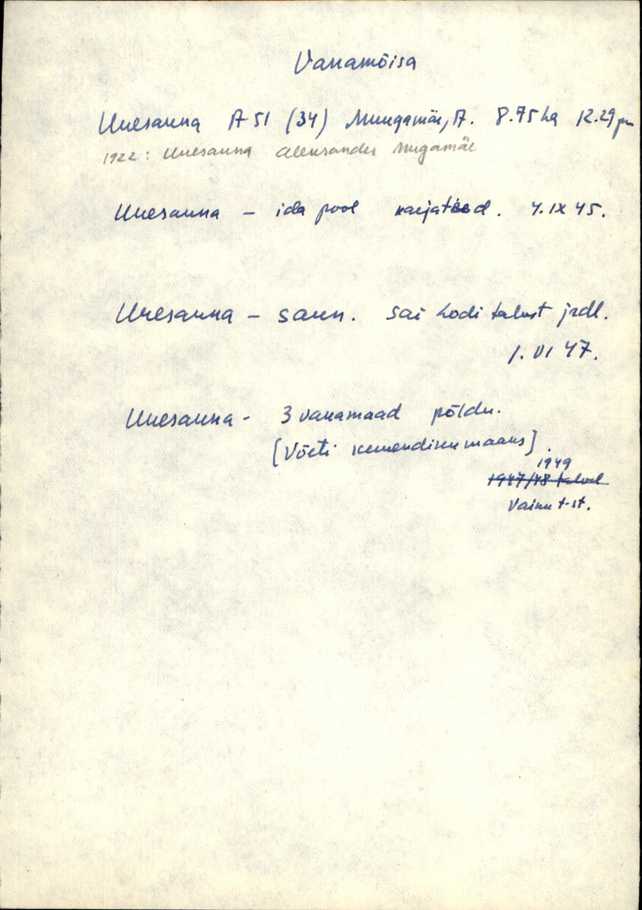 Vanamõisa
Uuesauna A 51 (34) Muugamäe, A. 8.75 ha 12.29
1922: Uuesauna Aleksander Mugamäe
Uuesauna – ida pool karjateed. 4.IX 45.
Uuesauna – saun. Sai Lodi talust jrdl.
1. VI 47.
Uuesauna - 3 vanamaad põldu.
[Võeti maaks].
1949
1947/48 talvel
Vainu t-st.